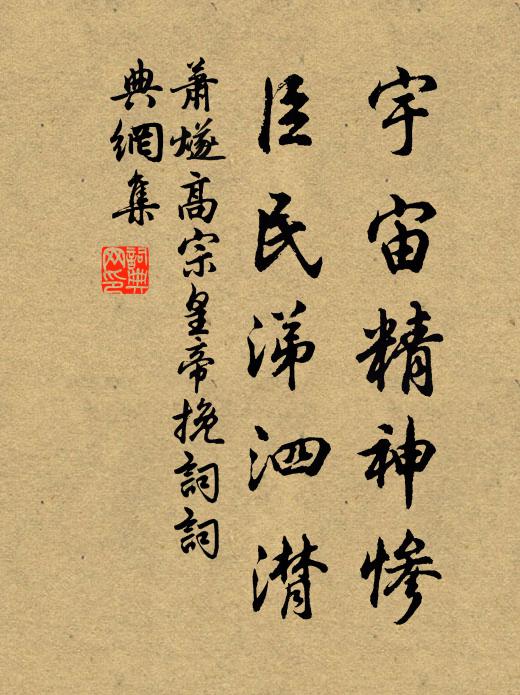 宇宙精神慘
臣民涕泗潸
蕭燧高宗皇帝挽詞詞
典網集
詞典網印